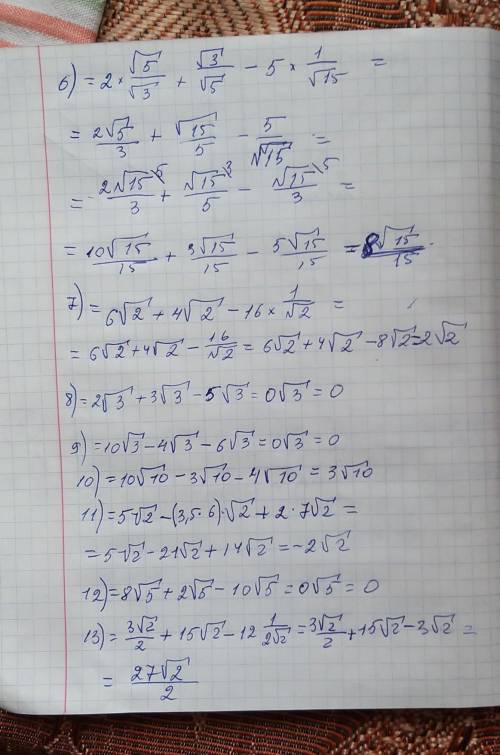 6) = 2 × √5/√3 + √3/√5 − 5 × 1/√15 =
= 2√5/3 + √15/5 − 5/√15 =
= 2√15/3 ⁵ + √15/5 ³ − √15/3 ⁵ =
= 10√15/15 + 3√15/15 − 5√15/15 = 8√15/15.
7) = 6√2 + 4√2 − 16 × 1/√2 =
= 6√2 + 4√2 − 16/√2 = 6√2 + 4√2 − 8√2 = 2√2
8) = 2√3 + 3√3 − 5√3 = 0√3 = 0
9) = 10√3 − 4√3 − 6√3 = 0√3 = 0
10) = 10√10 − 3√10 − 4√10 = 3√10
11) = 5√2 − (3,5·6)·√2 + 2·7√2 =
= 5√2 − 21√2 + 14√2 = −2√2
12) = 8√5 + 2√5 − 10√5 = 0√5 = 0
13) = 3√2/2 + 15√2 − 12 1/2√2 = 3√2/2 + 15√2 − 3√2 =
= 27√2/2